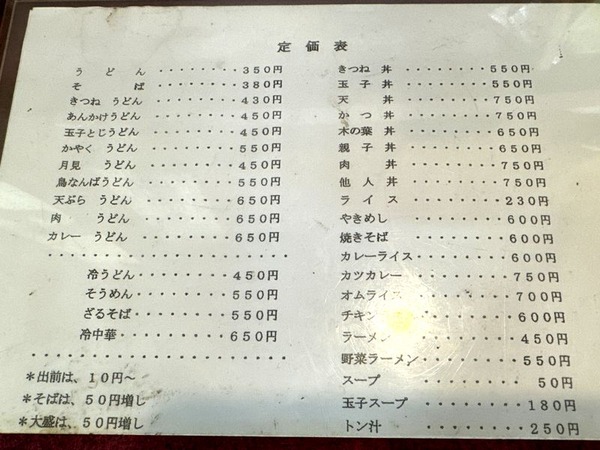 定価表
うどん・・・・・・・・350円
そば・・・・・・・・380円
きつねうどん・・・・・・・430円
あんかけうどん・・・・・・・450円
玉子とじうどん・・・・・・・450円
かやくうどん・・・・・・・550円
月見うどん・・・・・・・450円
鳥なんばうどん・・・・・・・550円
天ぷらうどん・・・・・・・650円
肉うどん・・・・・・・650円
カレーうどん・・・・・・・650円
冷うどん・・・・・・・450円
そうめん・・・・・・・550円
ざるそば・・・・・・・550円
冷中華・・・・・・・・650円
＊出前は、10円～
＊そばは、50円増し
＊大盛は、50円増し
きつね丼・・・・・・・・550円
玉子丼・・・・・・・・550円
天丼・・・・・・・・750円
かつ丼・・・・・・・・750円
木の葉丼・・・・・・・・650円
親子丼・・・・・・・・650円
肉丼・・・・・・・・750円
他人丼・・・・・・・・750円
ライス・・・・・・・・230円
やきめし・・・・・・・・600円
焼きそば・・・・・・・・600円
カレーライス・・・・・・・・600円
カツカレー・・・・・・・・750円
オムライス・・・・・・・700円
チキン・・・・・・600円
ラーメン・・・・・・・450円
野菜ラーメン・・・・・・・550円
スープ・・・・・・・50円
玉子スープ・・・・・・・180円
トン汁・・・・・・・250円